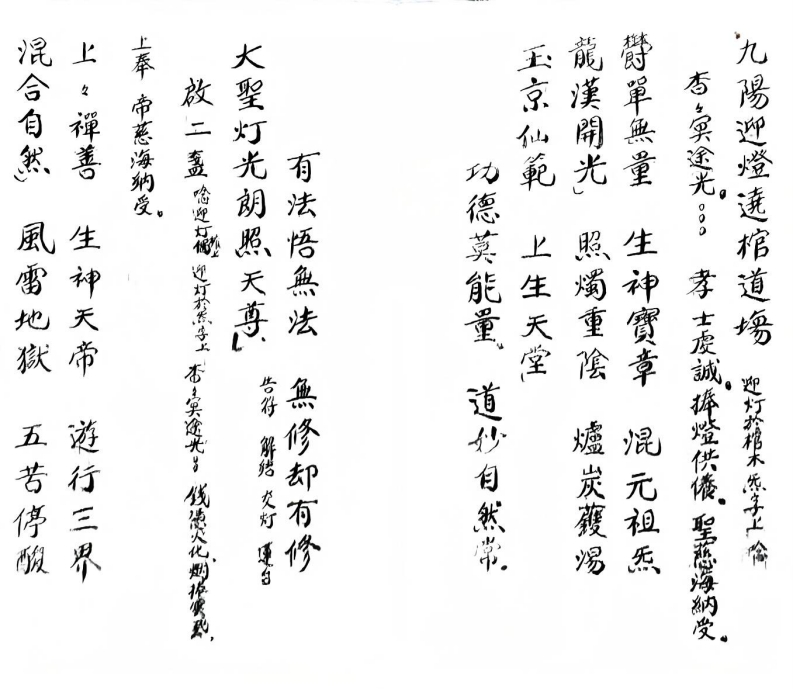 九陽迎燈遶棺道塲 迎灯於棺木炁字上
杳々冥途光。。。 孝士虔誠。捧燈供僠。聖慈海納受。
欝單無量 生神寶章 混元祖炁
龍漢開光」 照燭重陰 爐炭鑊湯
玉京仙範 上生天堂」
功德莫能量。 道妙自然常。
有法悟無法 無修却有修
大聖灯光朗照天尊」 告符 解结 灯 運白
啟二盞 唸迎灯偈 迎灯於炁字上 杳々冥途光 錢 火化
上奉 帝慈海納受。
上々禪善 生神天帝 遊行三界
混合自然」 風雷地獄 五苦停酸